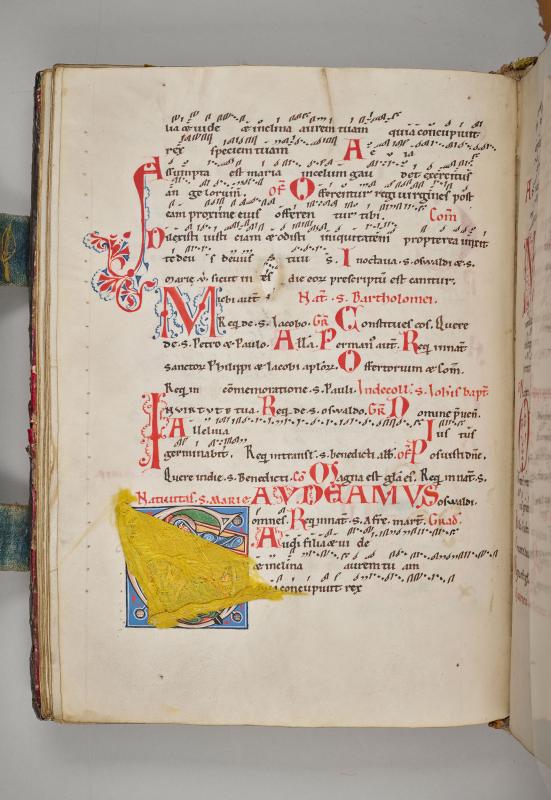 lia & uide & inclina aurem tuam quia concupiuit
rex speciem tuam A e u ia
Assumpta est maria in celum gau det exercitus
an gelorum. of O fferentur regi uirgines post
eam proxime eius offeren tur tibi. Com
Dilexisti iusti ciam & odisti iniquitatem propterea unxit
te deus deus tuus S. In octaua .s. oswaldi & .s.
marie. sicut in die eor prescriptum est cantitur.
Michi aut Nat .s. Bartholomei.
Req. de .s. Iacobo. Gr Constitues eos. Quere
de .s. Petro & Paulo. Alla. Per man aut. Req. in nat
sanctor Philippi & Iacobi aplor. Offertorium & Com.
Req. in comemoratione .s. Pauli. In decoll. s. Iohis bapt
IN VIRTUTE tua. Req. de .s. oswaldo. Gr Domine preuen.
Alleluia Ius tus
germinabit. Req. in transl. s. benedicti alb. of Posuisti dne.
Quere in die .s. Benedicti. Co Magna est gla ei. Req. in nat .s.
Natiuitas. S. MARIE GAVDEAMVS oswaldi.
omnes. Req. in nat .s. Afre mart. Grad.
Audi filia & ui de
& inclina aurem tu am
quia concupiuit rex